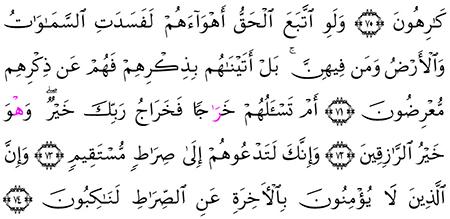 كَـٰرِهُونَ ﴿٧٠﴾ وَلَوِ ٱتَّبَعَ ٱلْحَقُّ أَهْوَآءَهُمْ لَفَسَدَتِ ٱلسَّمَـٰوَٰتُ
وَٱلْأَرْضُ وَمَن فِيهِنَّ ۚ بَلْ أَتَيْنَـٰهُم بِذِكْرِهِمْ فَهُمْ عَن ذِكْرِهِم
مُّعْرِضُونَ ﴿٧١﴾ أَمْ تَسْـَٔلُهُمْ خَرَٰجًا فَخَرَاجُ رَبِّكَ خَيْرٌ ۖ وَهْوَ
خَيْرُ ٱلرَّٰزِقِينَ ﴿٧٢﴾ وَإِنَّكَ لَتَدْعُوهُمْ إِلَىٰ صِرَٰطٍ مُّسْتَقِيمٍ ﴿٧٣﴾ وَإِنَّ
ٱلَّذِينَ لَا يُؤْمِنُونَ بِٱلْأَخِرَةِ عَنِ ٱلصِّرَٰطِ لَنَـٰكِبُونَ ﴿٧٤﴾